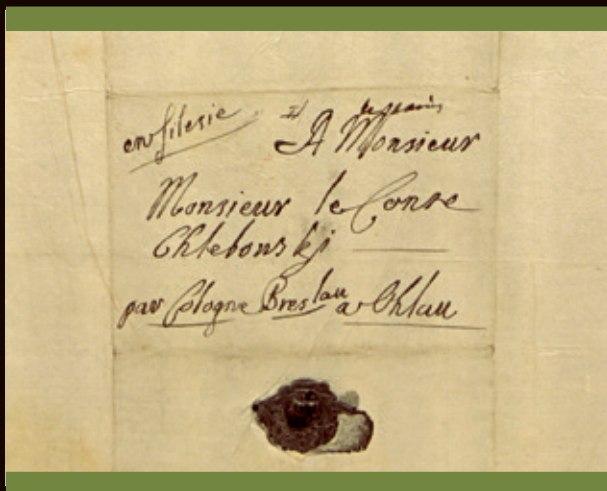 en Silesie
A Monsieur
Monsieur le Conte
Chlebonski
par Cologne Breslau a Ohlau